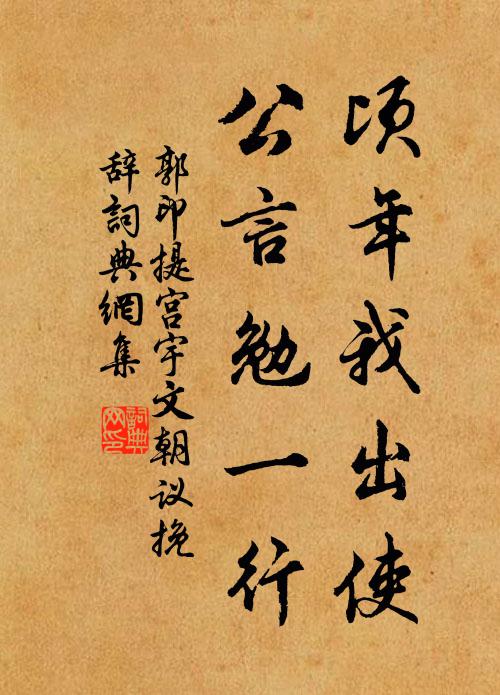 頃年我出使
公言勉一行
郭印提宫宇文朝议挽
辞詞典網集
詞典
网印